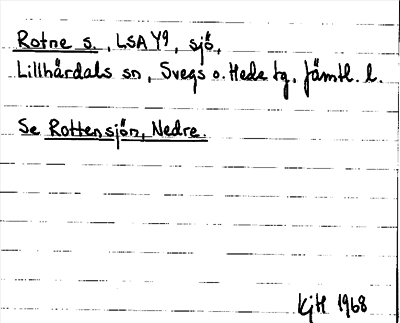 Rotne s., LSA Y9, sjö,
Lillhärdals sn, Svegs o. Hede tg, Jämtl. l.
Se Rottensjön, Nedre.
KjH 1968